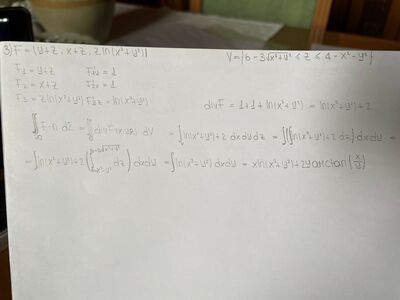 3) F = (y+z, x+z, z ln(x²+y²)) V = {6 - 3√x²+y² ≤ z ≤ 4 - x² - y²}
F₁ = y+z F'₁y = 1
F₂ = x+z F'₂x = 1
F₃ = z ln(x²+y²) F'₃z = ln(x²+y²) divF = 1+1+ln(x²+y²) = ln(x²+y²)+2
∯ F·n dΣ = ∭ div F(x,y,z) dV = ∫ ln(x²+y²)+2 dxdydz = ∫(∫∫ln(x²+y²)+2 dz) dxdy =
= ∫ln(x²+y²)+2 (∫ dz) dxdy = ∫ln(x²+y²) dxdy = xln(x²+y²)+2y arctan(x/y)